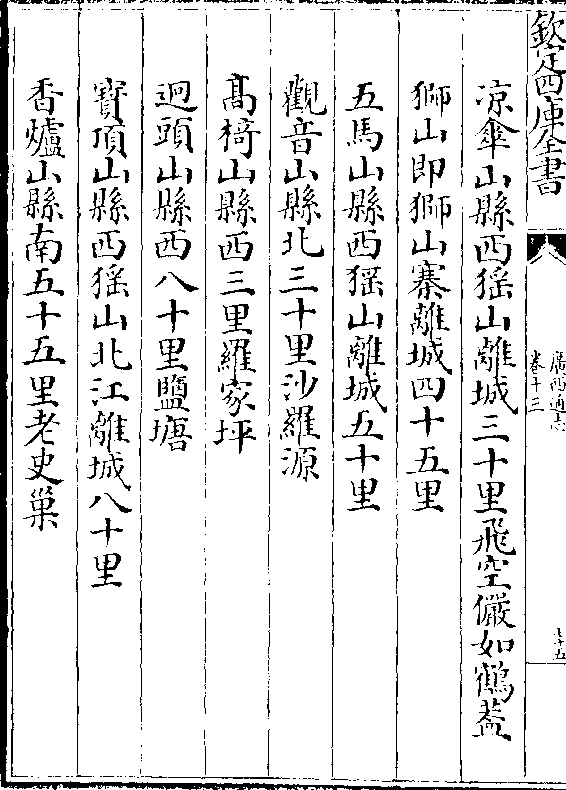 欽定四庫全書
廣西通志
卷十三
七十五
凉傘山縣西猺山離城三十里飛空儼如鶴葢
獅山即獅山寨離城四十五里
五馬山縣西猺山離城五十里
觀音山縣北三十里沙羅源
髙椅山縣西三里羅家坪
迴頭山縣西八十里鹽塘
寳頂山縣西猺山北江離城八十里
香爐山縣南五十五里老史巢